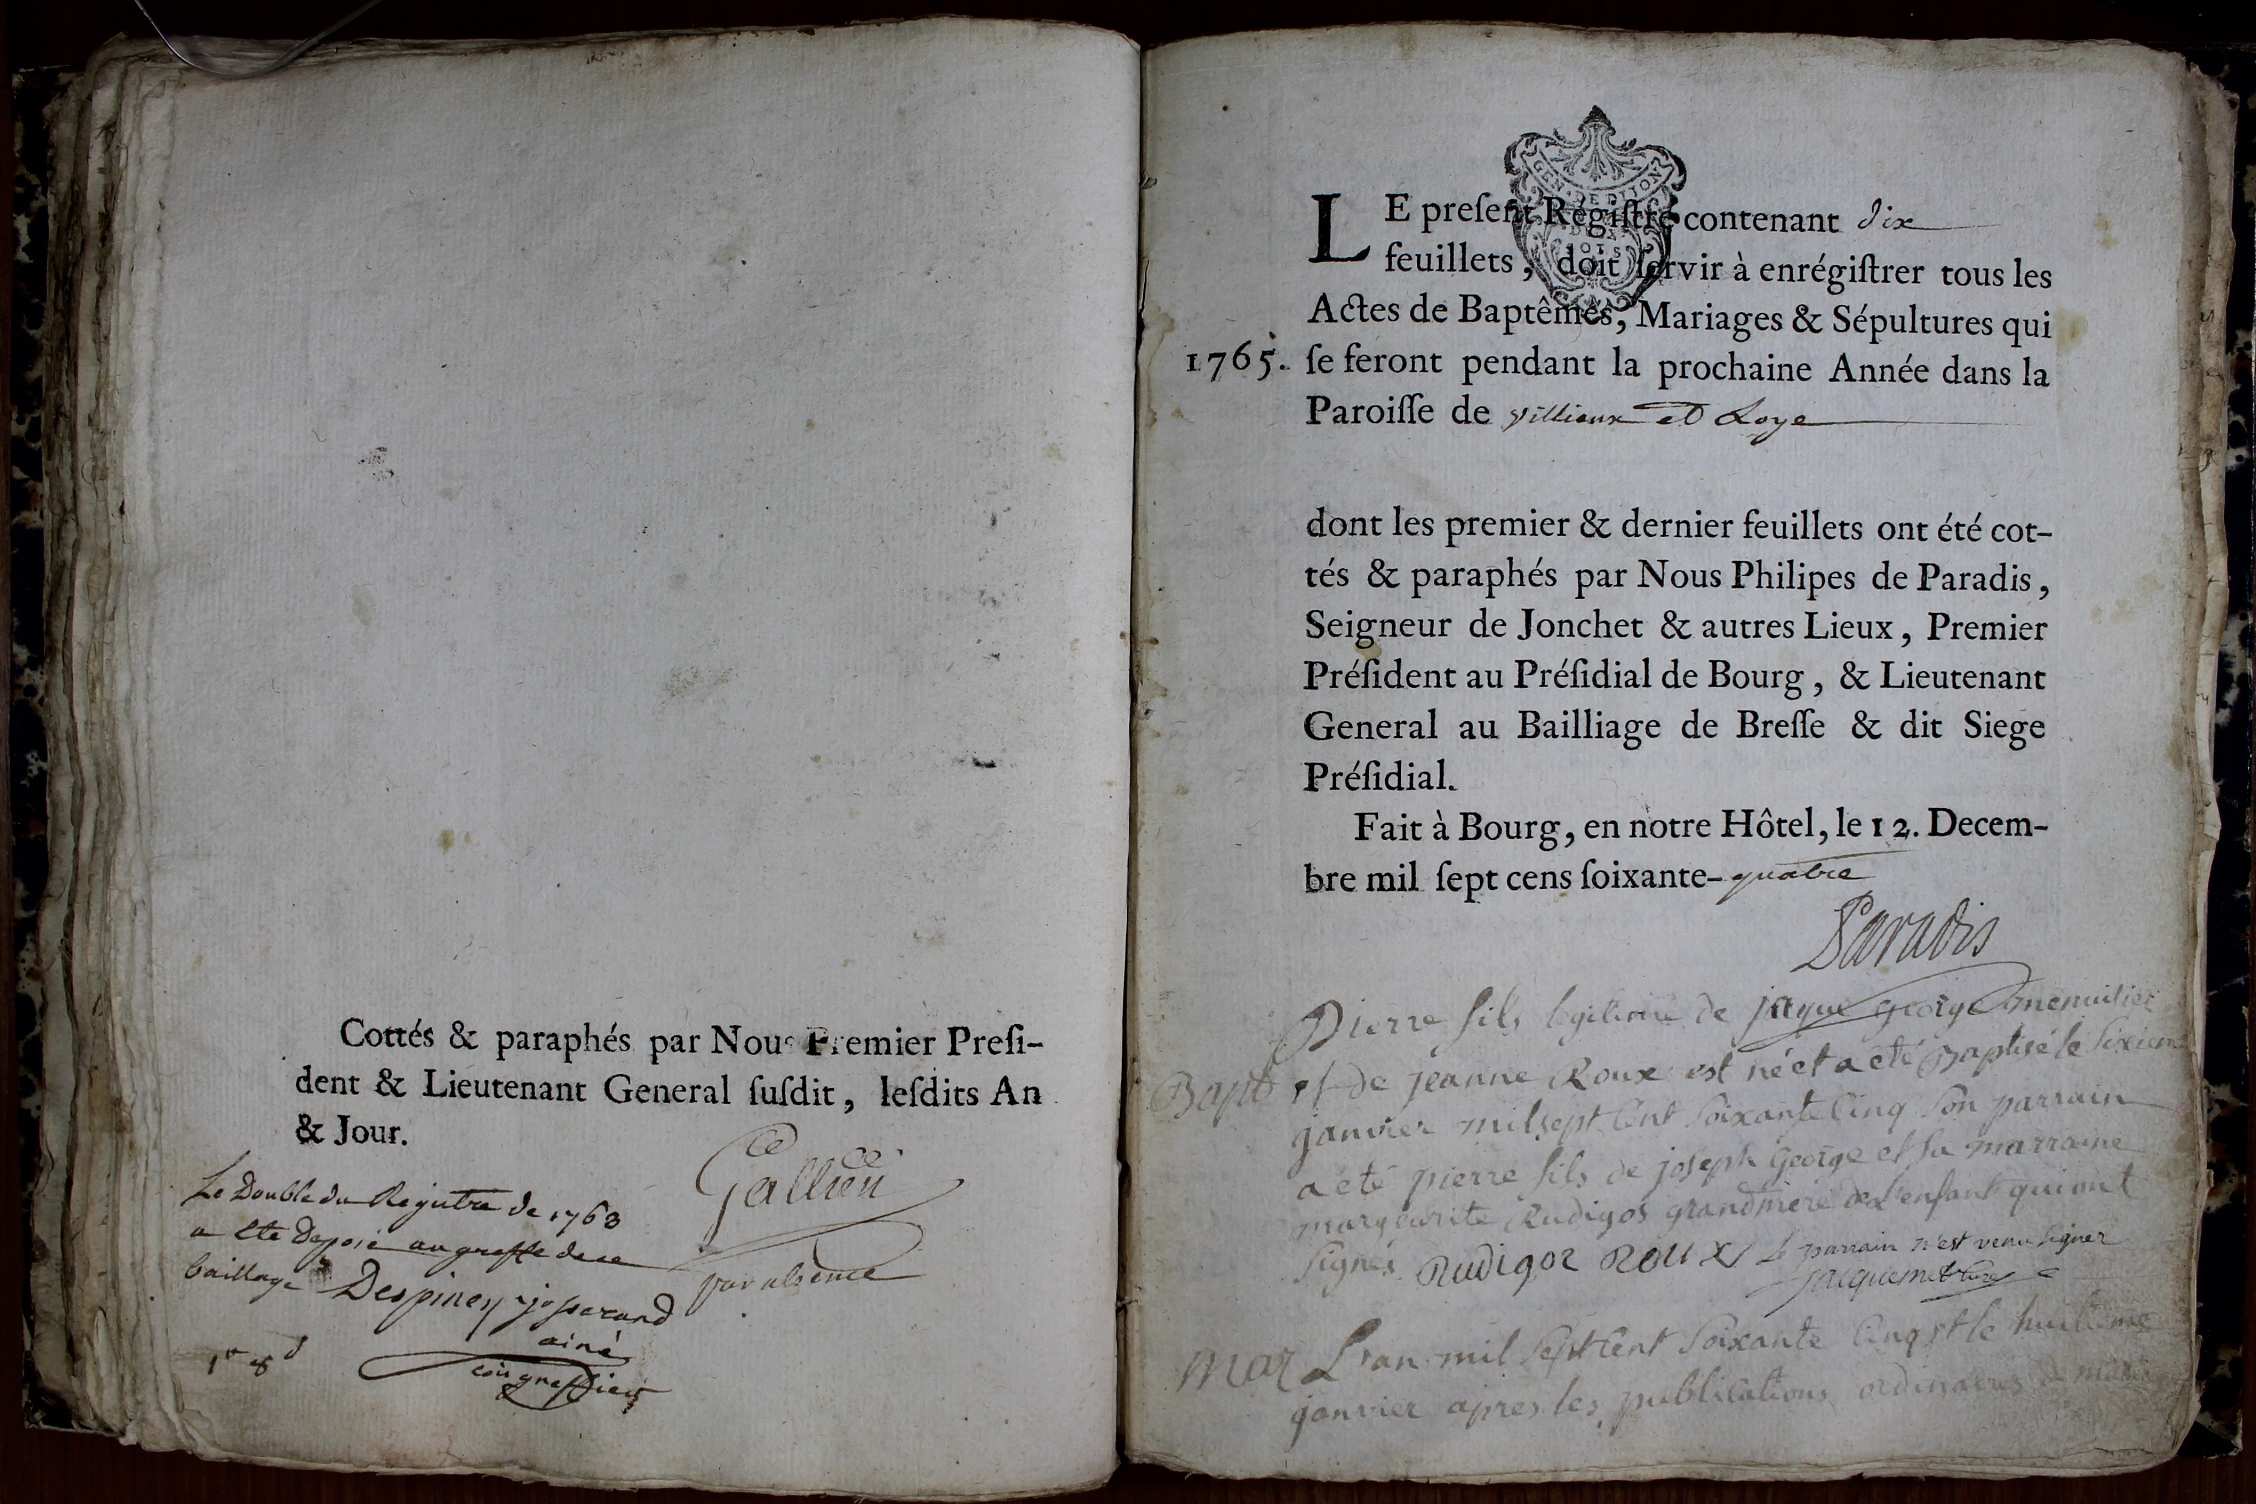 Cottés & paraphés par Nous Premier Preſi-
dent & Lieutenant General ſuſdit, leſdits An
& Jour.
Gallien
par absence
Le Double du Registre de 1763
a ete deposé au greffe de ce
bailliage Despiney josserand
ainé
coû greffier
GEN · DE DIJON
LE preſent Régiſtre contenant dix
feuillets, doit ſervir à enrégiſtrer tous les
Actes de Baptêmes, Mariages & Sépultures qui
1765. ſe feront pendant la prochaine Année dans la
Paroiſſe de Villieux et Loye
dont les premier & dernier feuillets ont été cot-
tés & paraphés par Nous Philipes de Paradis,
Seigneur de Jonchet & autres Lieux, Premier
Préſident au Préſidial de Bourg, & Lieutenant
General au Bailliage de Breſſe & dit Siege
Préſidial.
Fait à Bourg, en notre Hôtel, le 12. Decem-
bre mil ſept cens ſoixante-quatre
Paradis
Pierre fils legitime de jaque george menuisier
Bapt et de jeanne Roux est né et a eté Baptisé le sixieme
janvier mil sept cent soixante cinq son parrain
a eté pierre fils de joseph George et sa marraine
marguerite Rudigos grandmere de l'enfant qui ont
signés Rudigoz ROUX le parrain n'est venu signer
jacquemet curé
Mar L'an mil sept cent soixante cinq et le huitieme
janvier apres les publications ordinaires de